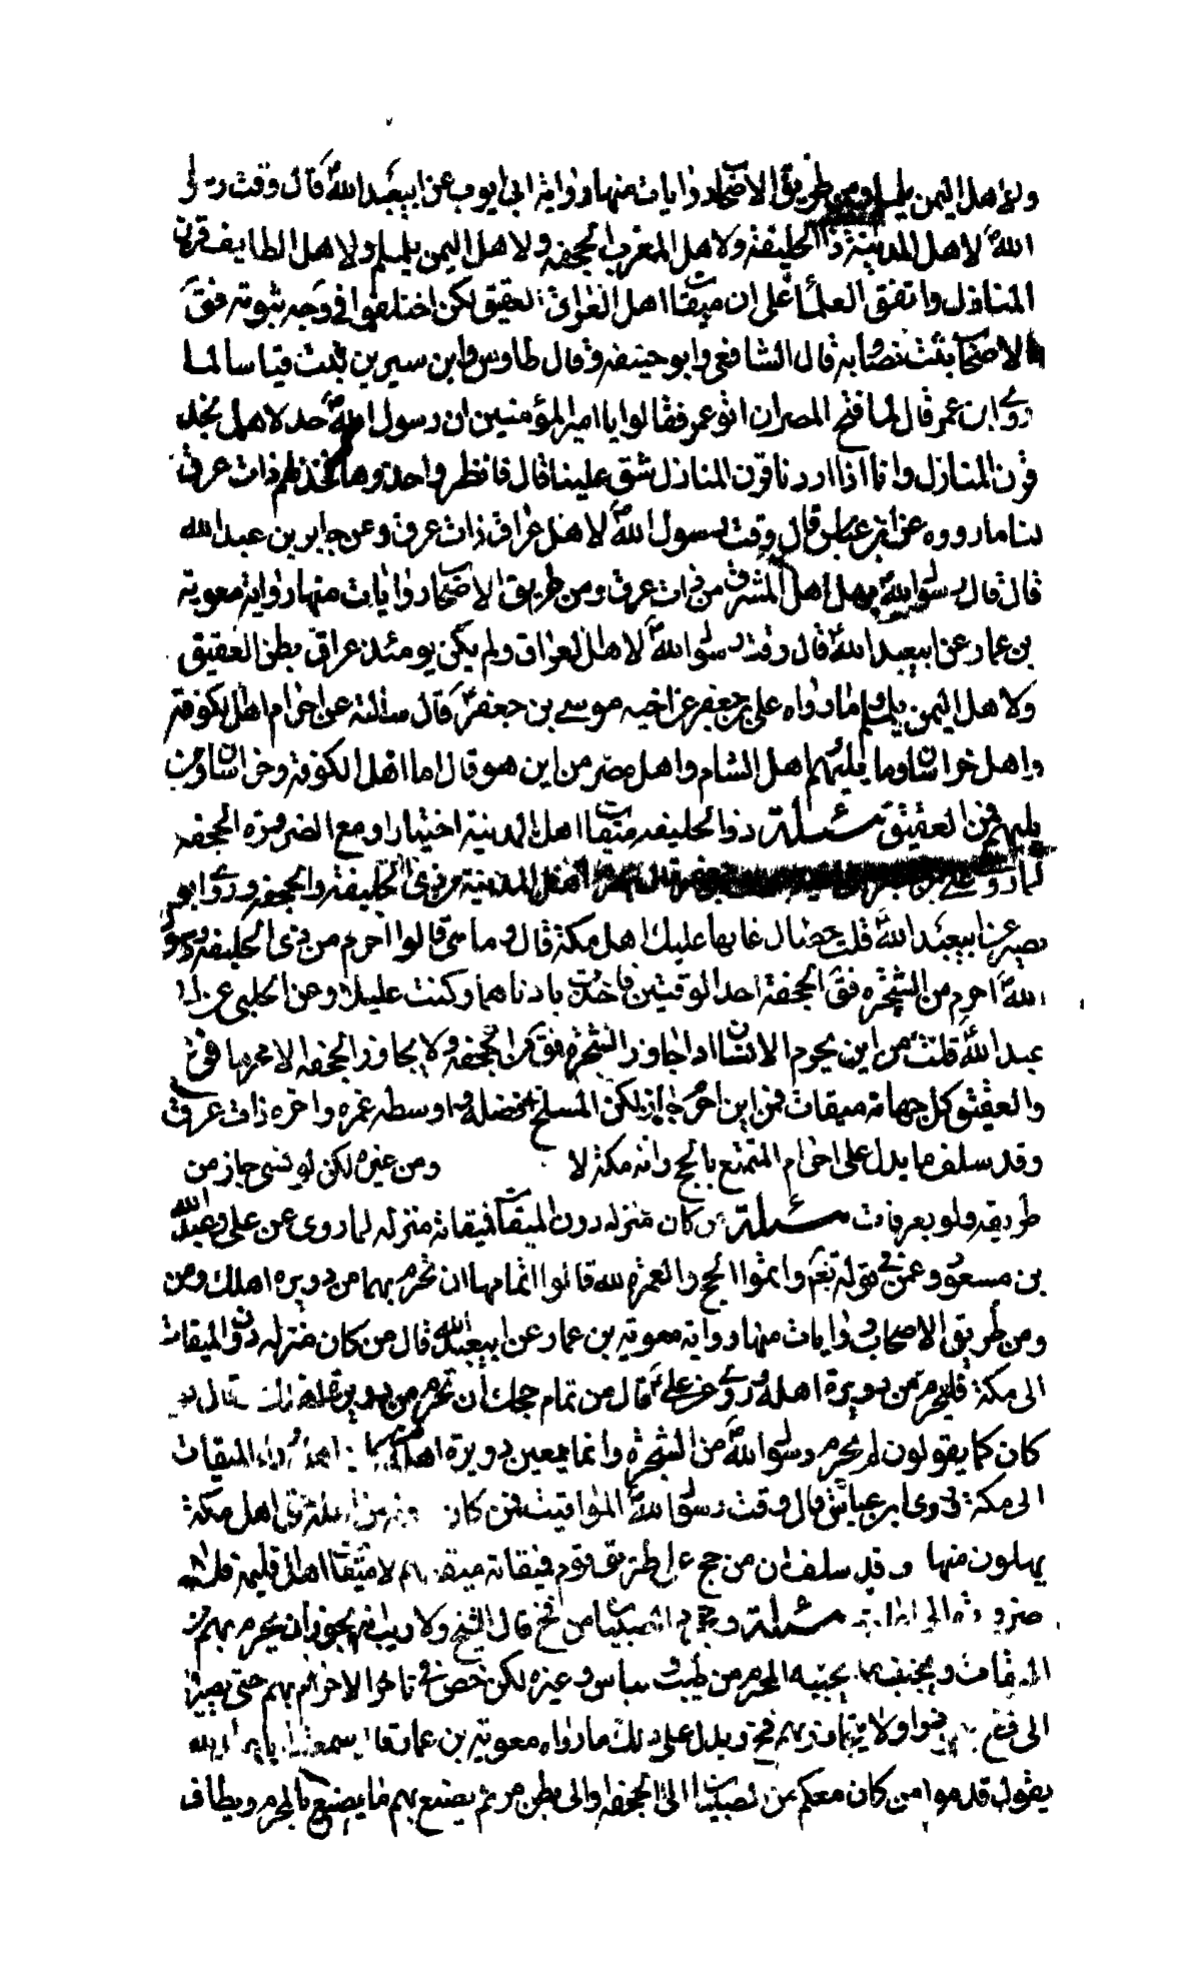 ولاهل اليمن يلملم ومن طريق الاصحاب روايات منها رواية ابى ايوب عن ابيعبد الله ع قال وقت رسول
الله ص لاهل المدينة ذا الحليفة ولاهل المغرب الجحفه ولاهل اليمن يلملم ولاهل الطايف قرن
المنازل واتفق العلماء على ان ميقات اهل العراق العقيق لكن اختلفوا فى وجه ثبوته فق
الاصحاب يثبت نصا وبه قال الشافعى وابو حنيفه وقال طاوس وابن سيرين يثبت قياسا لما
روى ابن عمر قال لما فتح المصران اتو عمر فقالوا يا امير المؤمنين ان رسول الله ص حد لاهل نجد
قرن المنازل وانا اذا اردنا قرن المنازل شق علينا قال فانظروا حذوها فحد لهم ذات عرق
لنا ما رووه عن ابن عباس قال وقت رسول الله ص لاهل عراق ذات عرق وعن جابر بن عبد الله
قال قال رسول الله ص يهل اهل المشرق من ذات عرق ومن طريق الاصحاب روايات منها رواية معوية
بن عمار عن ابيعبد الله ع قال وقت رسول الله ص لاهل العراق ولم يكن يومئذ عراق بطن العقيق
ولاهل اليمن يلملم وما رواه على بن جعفر عن اخيه موسى بن جعفر ع قال سالته عن احرام اهل الكوفة
واهل خراسان وما يليهم واهل الشام واهل مصر من اين هو قال اما اهل الكوفة وخراسان ومن
يليهم فمن العقيق مسئلة ذو الحليفه ميقات اهل المدينة اختيارا ومع الضرورة الجحفه
لما روى على بن جعفر اهل المدينة من ذى الحليفة والجحفه وروى ابو
بصير عن ابيعبد الله ع قلت خصال عابها عليك اهل مكة قال وما هى قالوا احرم من ذى الحليفة ورسول
الله ص احرم من الشجره فق الجحفة احد الوقتين فاخذت بادناهما وكنت عليلا وعن الحلبى عن ابى
عبد الله ع قلت من اين يحرم الانسان اذا جاوز الشجرة فق من الجحفة ولا يجاوز الجحفه الا محرما
والعقيق كل جهاته ميقات فمن اين احرم جاز لكن المسلخ افضله واوسطه غمره واخره ذات عرق
وقد سلف ما يدل على احرام المتمتع بالحج وانه مكة لا ومن غيره لكن لو نسى جاز من
طريقه ولو بعرفات مسئلة من كان منزله دون الميقات فميقاته منزله لما روى عن على وعبد الله
بن مسعود وعمر فى قوله تعم واتموا الحج والعمرة لله قالوا اتمامهما ان تحرم بهما من دويره اهلك ومن
ومن طريق الاصحاب روايات منها رواية معوية بن عمار عن ابيعبد الله قال من كان منزله دون الميقات
الى مكة فليحرم من دويرة اهله وروى عن على ع قال من تمام حجك ان تحرم من دويرة
كان كما يقولون لم يحرم رسول الله ص من الشجرة وانما يعين دويرة اهله وراء الميقات
الى مكة روى ابن عباس قال وقت رسول الله ص المواقيت فمن كان اهل مكة
يهلون منها وقد سلف ان من حج على طريق قوم فميقاته ميقاتهم لا ميقات اهل اقليمه
مسئلة ويجرد الصبيان من فخ قال الشيخ ولا ريب انه يجوز ان يحرم بهم من
الميقات ويجنب ما يجتنبه المحرم من طيب ولباس وغيره لكن رخص فى تاخر الاحرام بهم حتى يصيروا
الى فخ ولا يتجاوز بهم فخ ويدل على ذلك ما رواه معوية بن عمار قال سمعت ابا عبد الله
يقول قدموا من كان معكم من الصبيان الى الجحفه والى بطن مر ثم يصنع بهم ما يصنع بالمحرم ويطاف